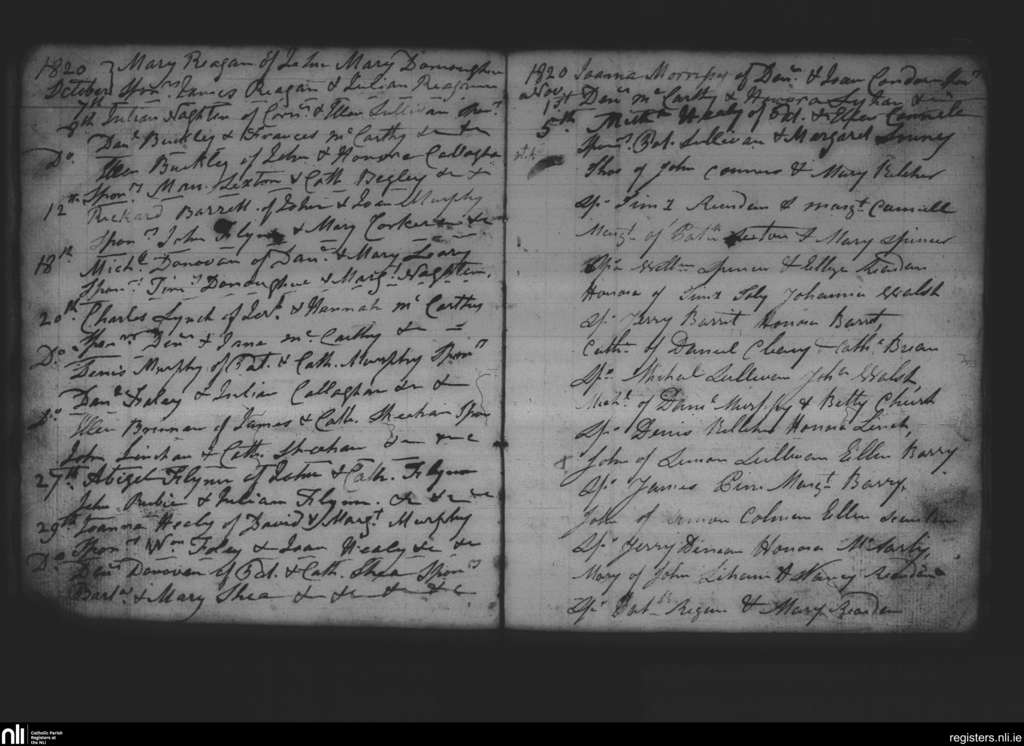 1820 Mary Reagan of John Mary Donoughue
October Spon.rs James Reagan & Julian Reagan
7th Julian Naghten of Corn.s & Ellen Sullivan Spon.rs
8th Dan.l Buckley & Frances McCarthy &c &c
Do. Ellen Buckley of John & Honora Callaghan
Spon.rs Mau. Sexton & Cath. Begley &c &c
12th Richard Barrett of John & Joan Murphy
Spon.rs John Flynn & Mary Corker
18th Mich.l Donovan of Dan.l & Mary Leary
Spon.rs Tim.y Donoughue & Marg.t Naghten.
20th Charles Lynch of Jer.h & Hannah McCarthy
Spon.rs Denis & Jane McCarthy &c
Do. Denis Murphy of Pat. & Cath. Murphy Spon.rs
Dan.l Foley & Julian Callaghan &c &
Do. Ellen Brennan of James & Cath. Sheehan Spon
John Linehan & Cath. Sheehan &c &c
27th Abigel Flynn of John & Cath. Flynn
John Rubie & Julian Flynn &c &c
29th Joanna Healy of David & Marg.t Murphy
Spon.rs Wm Foley & Joan Healy &c &c
Do. Dan.l Donovan of Pat. & Cath. Shea Spon.rs
Bart.w & Mary Shea & &c &c &c
1820 Joanna Morrissy of Dan.l & Joan Condon Spon.rs
Nov. 1st Dan.l McCarthy & Honora
5th Mich.l Healy of Pat. & Ellen Connell
Spon.rs Pat. Sullivan & Margaret
Thos of John Connors & Mary Belcher
Sp.s Tim.y Reardan & Marg.t Connell
Marg.t of Patk Sexton & Mary Spencer
Sp.s Willm Spencer & Ellen Reardan
Honora of Tim.y Foley Johanna Walsh
Sp.s Jerry Barret Honora Barret,
Cath. of Daniel Cleary & Cath. Brian
Sp.s Michal Sullivan Joh.a Walsh,
Mich.l of Dan.l Murphy & Betty Church
Sp.s Denis Belcher Honora Linch,
John of Simon Sullivan Ellen Barry
Sp.s James Marg.t Barry,
John of Simon Colman Ellen
Sp.s Jerry Dinean Honora McCarty,
Mary of John & Nancy Reardan
Sp.s Pat.k Regan & Mary Reardan
nli Catholic Parish
Registers at
the NLI
registers.nli.ie